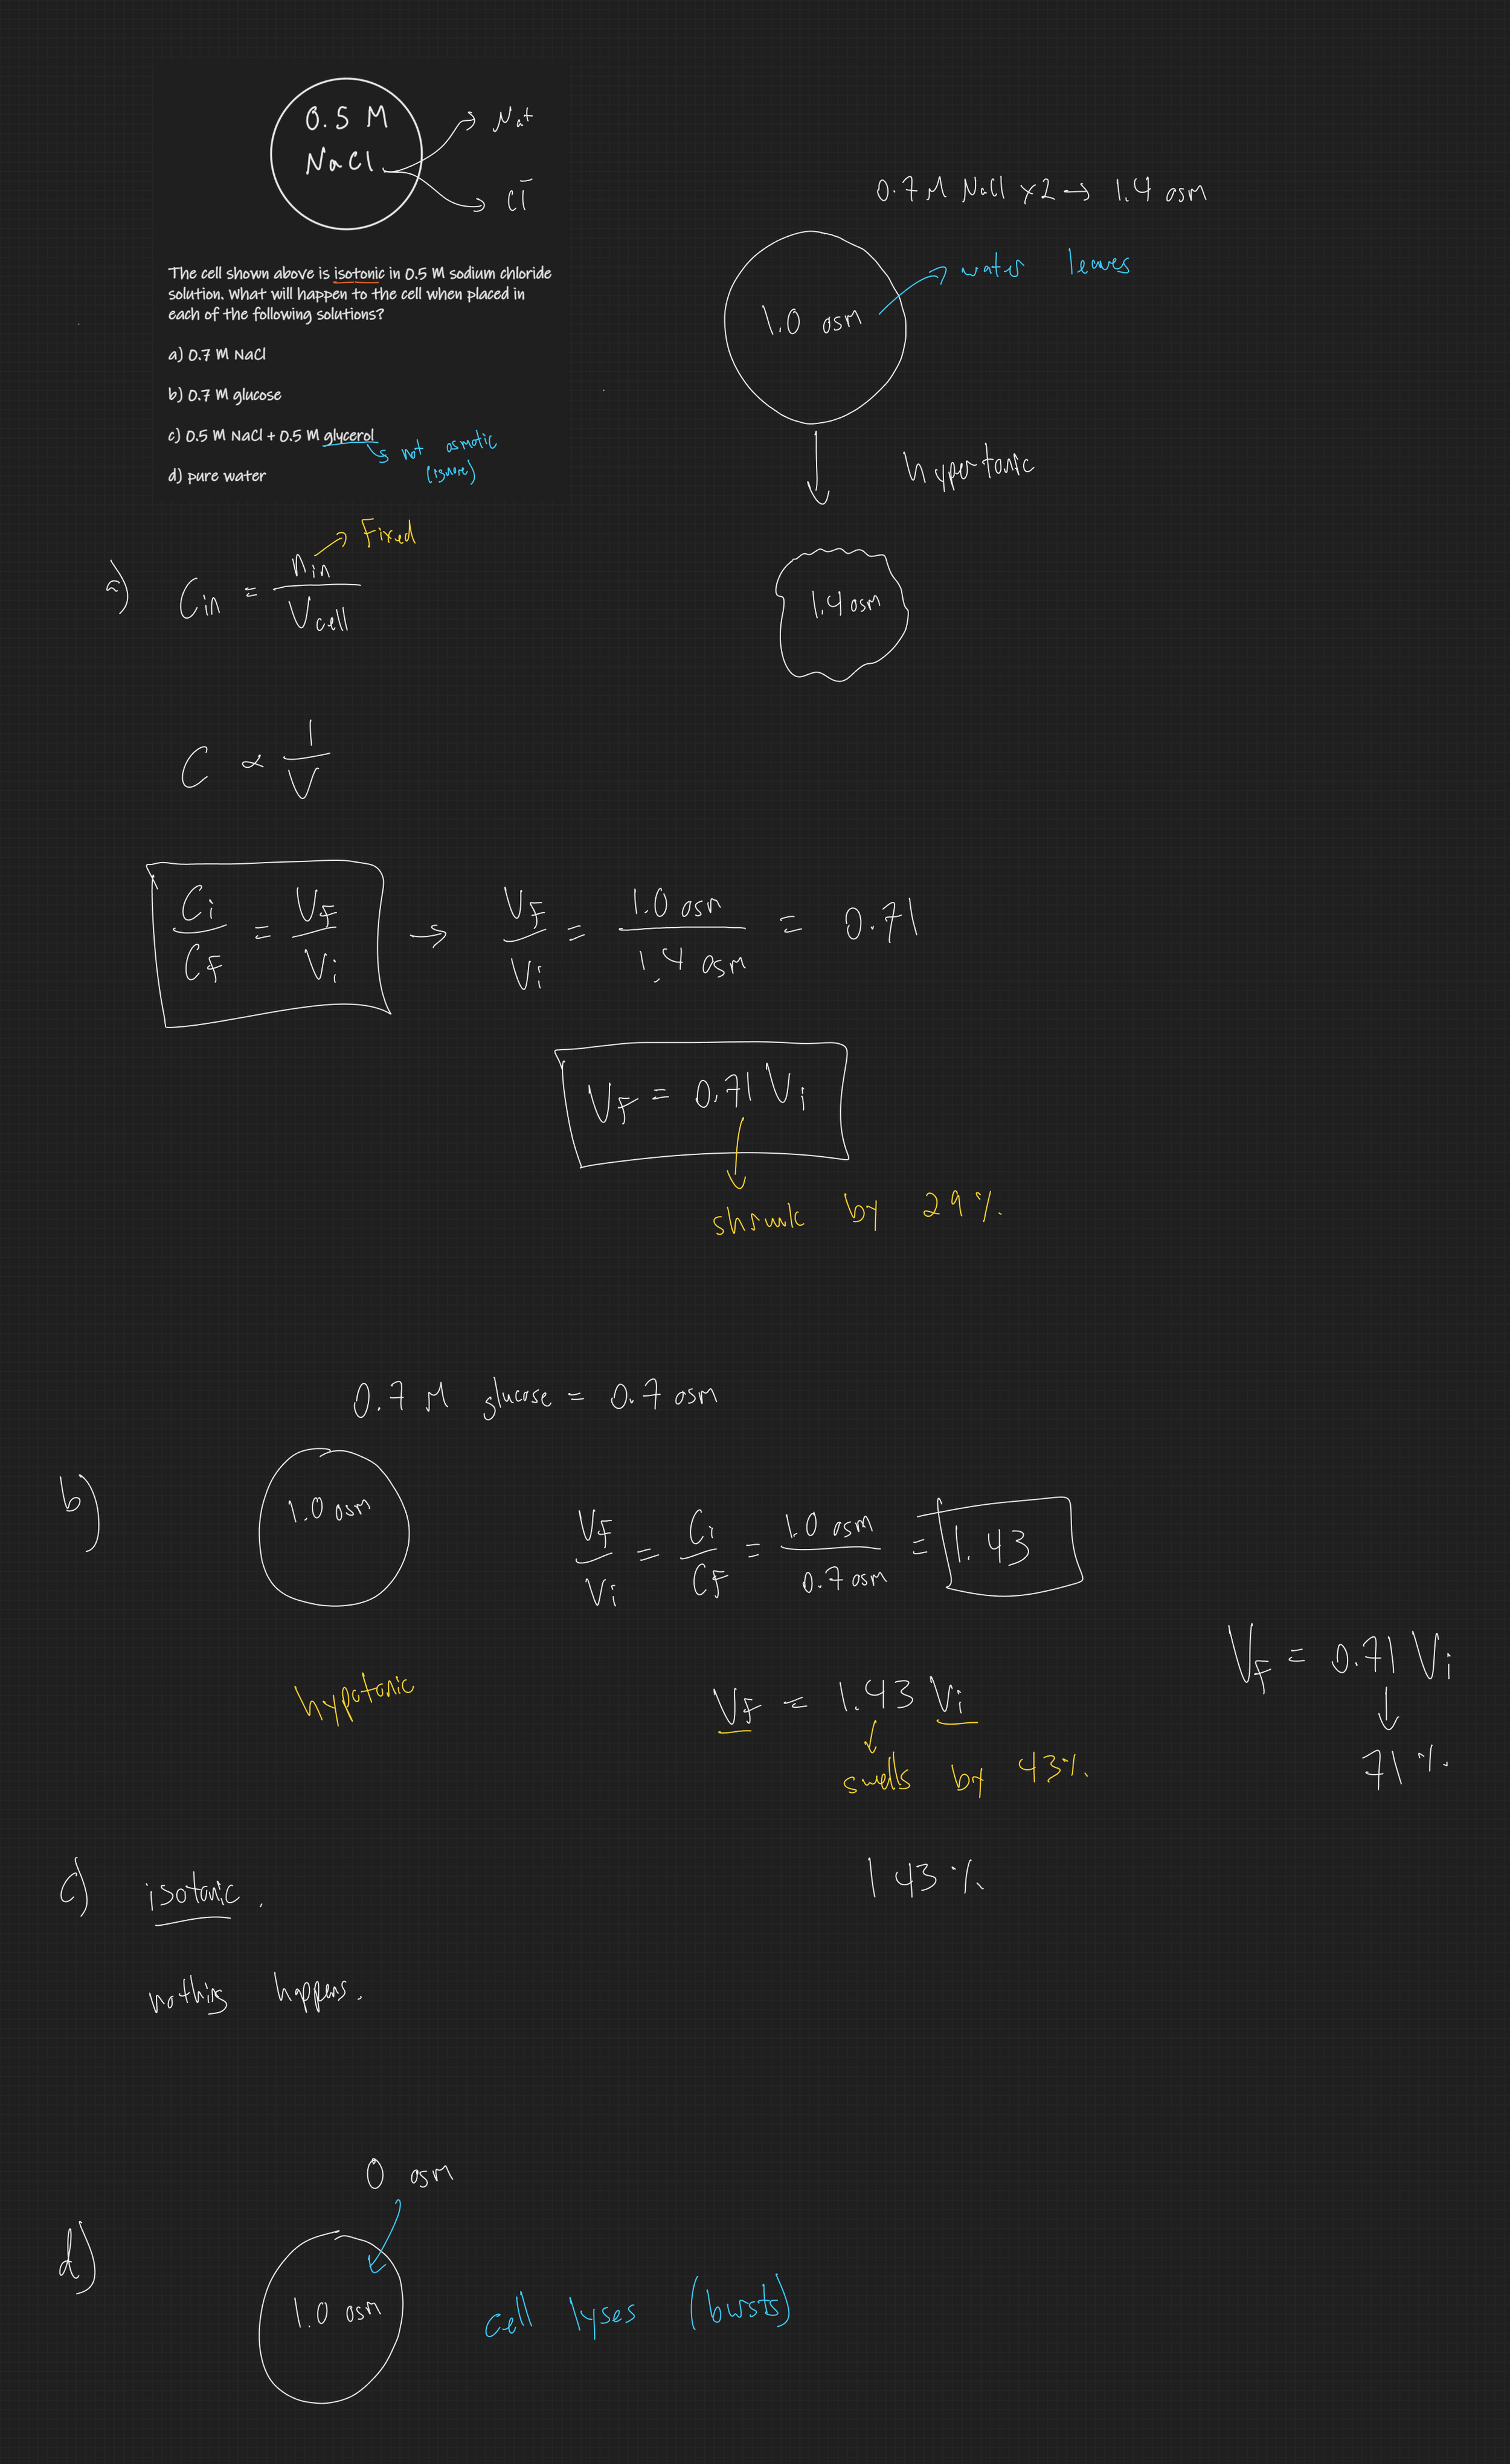 0.5 M
NaCl
Na+
Cl-
The cell shown above is isotonic in 0.5 M sodium chloride
solution. What will happen to the cell when placed in
each of the following solutions?
a) 0.7 M NaCl
b) 0.7 M glucose
c) 0.5 M NaCl + 0.5 M glycerol
not osmotic
(ignore)
d) pure water
0.7 M NaCl x2 → 1.4 osm
water leaves
1.0 osm
hypertonic
1.4 osm
a) Cin = nin / Vcell
Fixed
C ∝ 1/V
Ci/CF = VF/Vi → VF/Vi = 1.0 osm / 1.4 osm = 0.71
VF = 0.71 Vi
shrunk by 29%
0.7 M glucose = 0.7 osm
b)
1.0 osm
VF/Vi = Ci/CF = 1.0 osm / 0.7 osm = 1.43
hypotonic
VF = 1.43 Vi
swells by 43%
143%
VF = 0.71 Vi
71%
c) isotonic.
nothing happens.
0 osm
d)
1.0 osm
cell lyses (bursts)